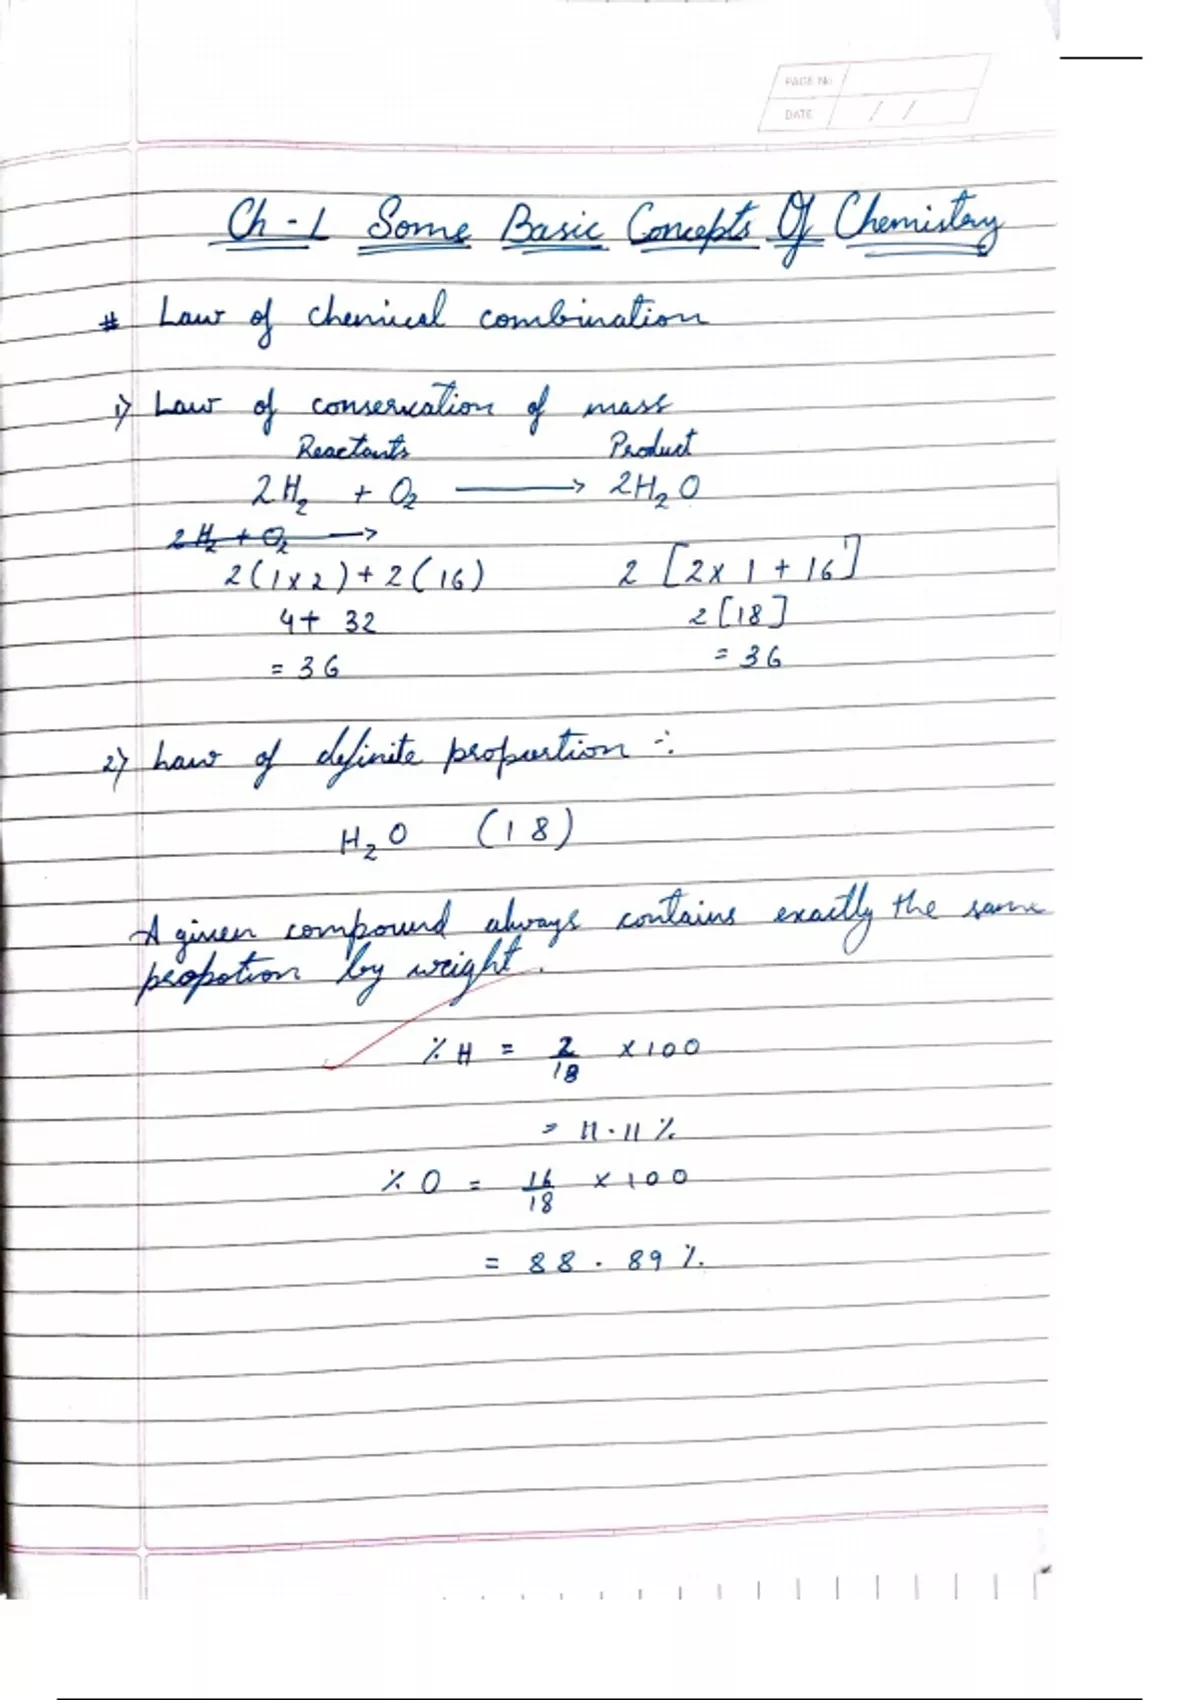 PAGE No.
DATE / /
Ch-1 Some Basic Concepts Of Chemistry
# Law of chemical combination
1) Law of conservation of mass
Reactants Product
2H₂ + O₂ ⟶ 2H₂O
2H₂ + O₂ ⟶
2(1x2)+2(16) 2[2x1+16]
4+32 2[18]
=36 =36
2) Law of definite proportion :-
H₂O (18)
A given compound always contains exactly the same
propotion by weight.
% H = 2/18 x100
= 11.11%
% O = 16/18 x100
= 88.89%.